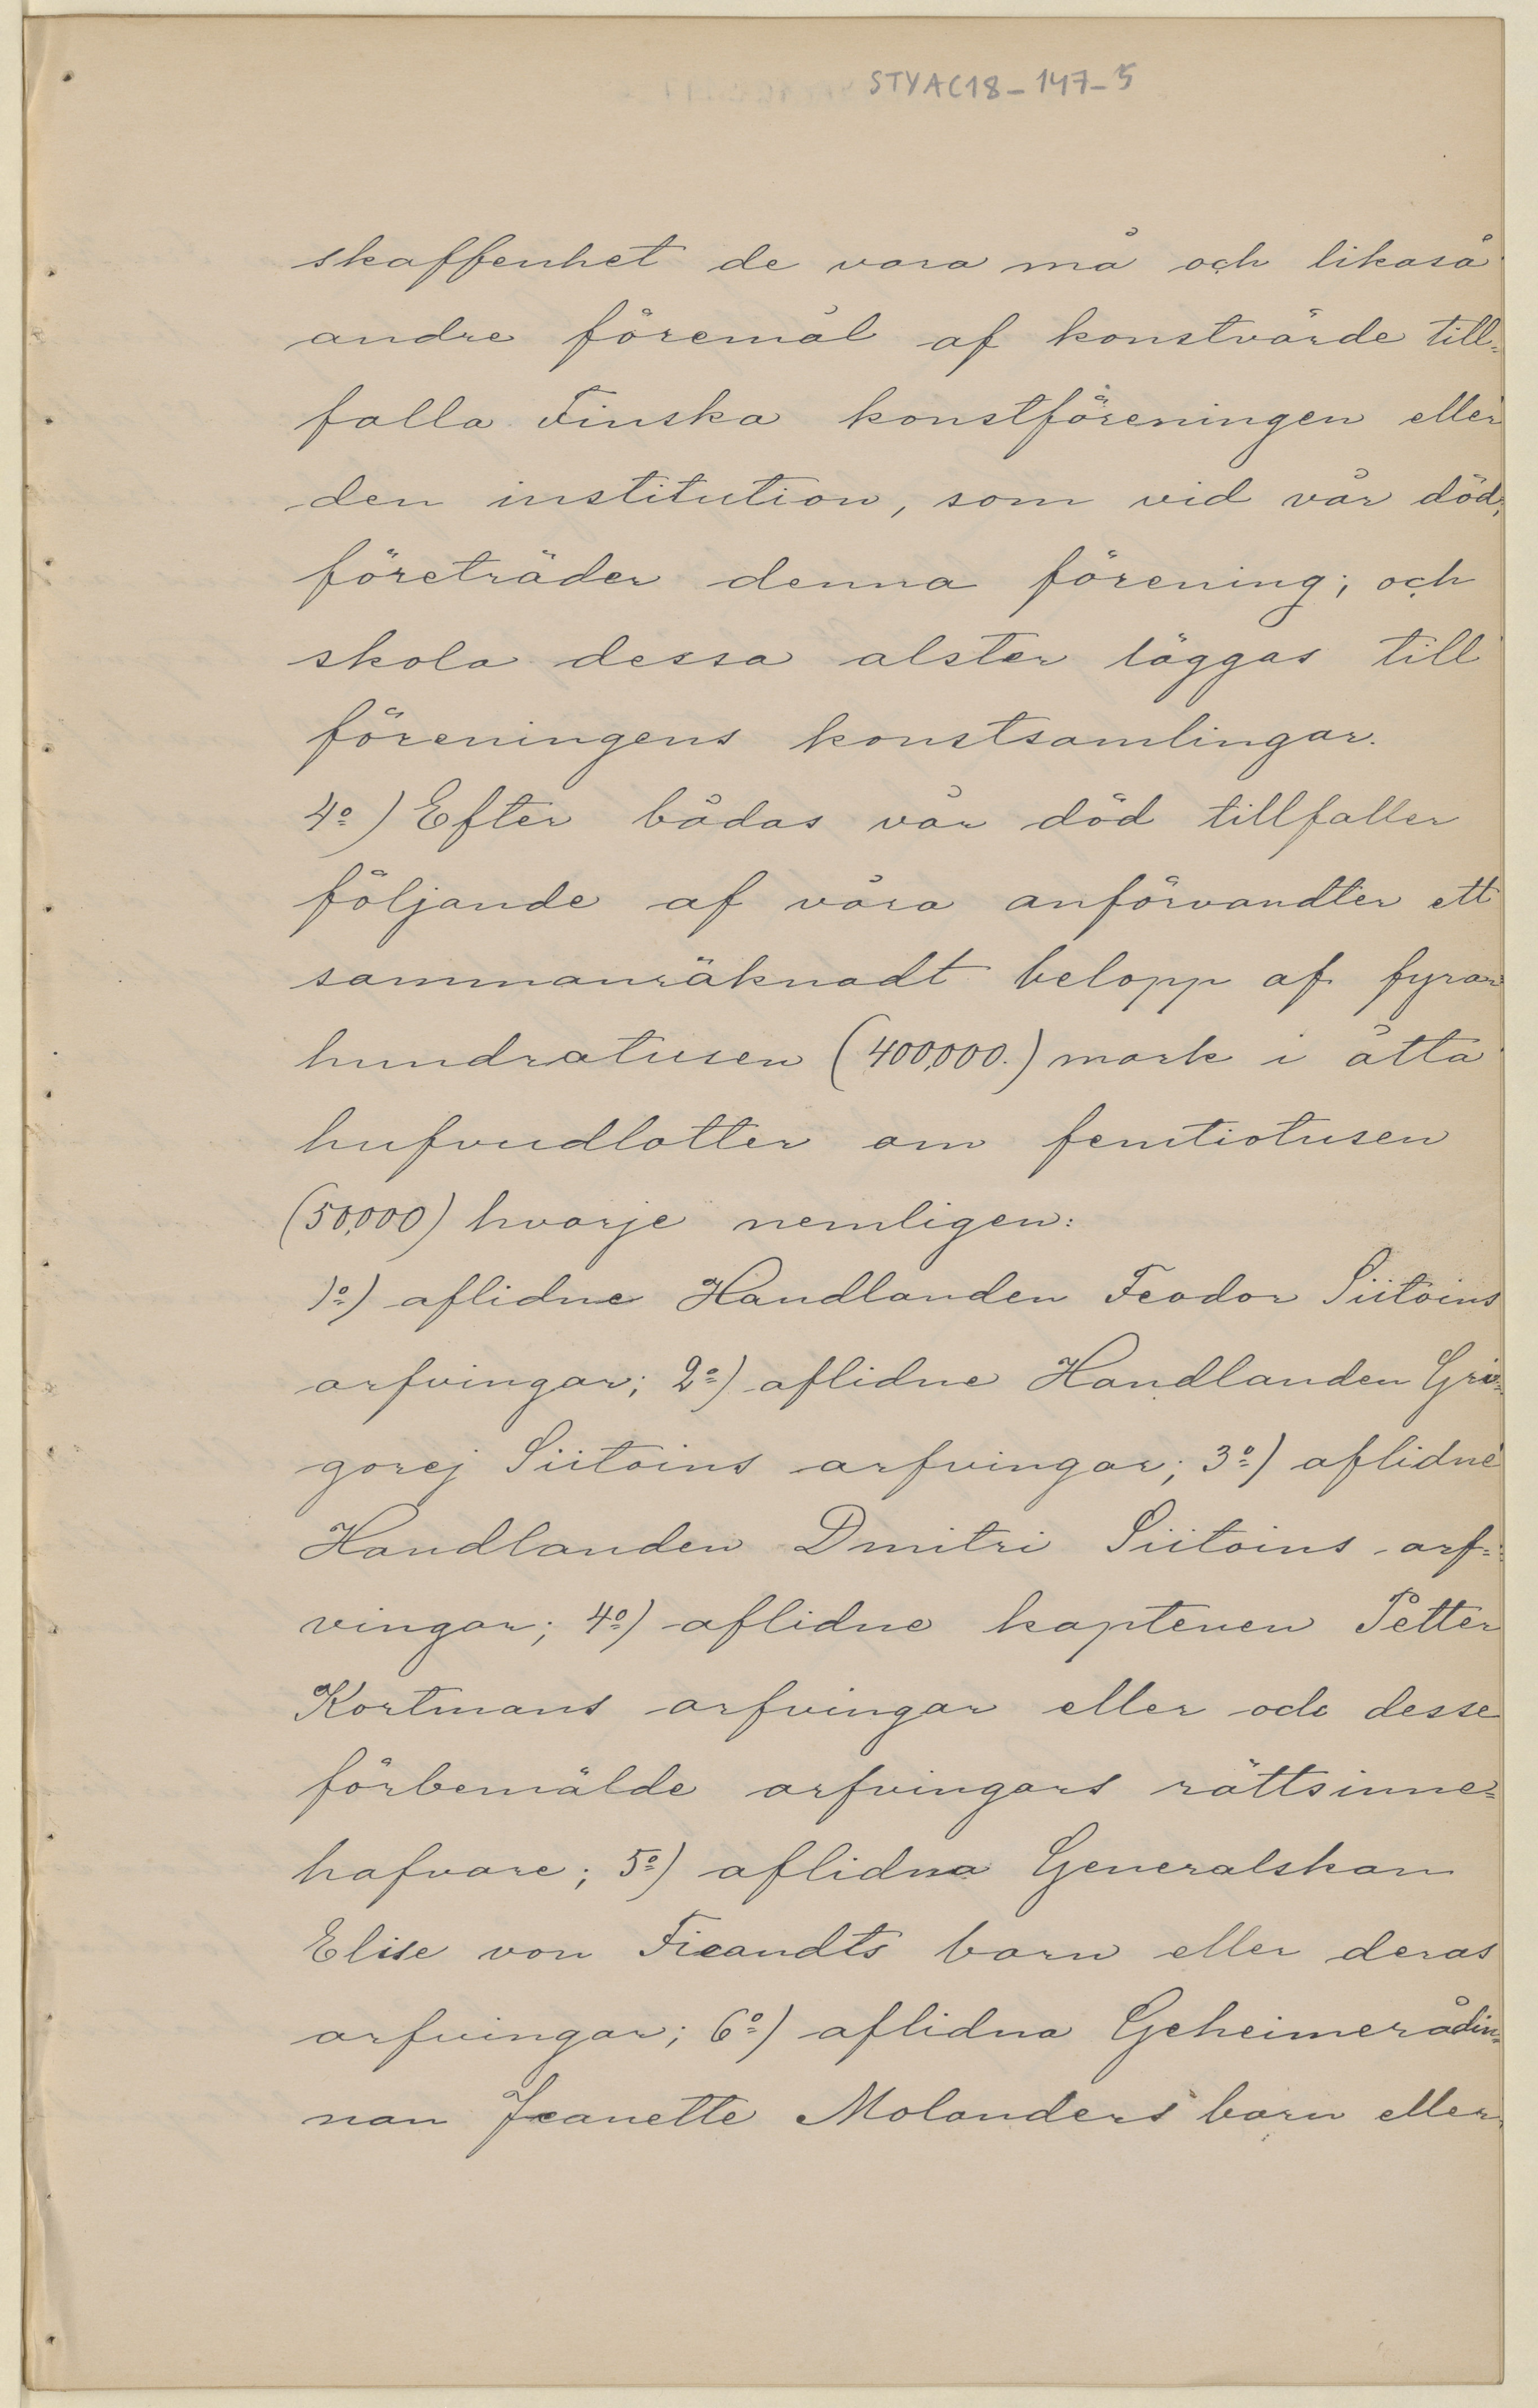 STYAC18-147-5
skaffenhet de vara må och likaså
andre föremål af konstvärde till=
falla Finska konstföreningen eller
den institution, som vid vår död,
företräder denna förening; och
skola dessa alster läggas till
föreningens konstsamlingar.
4º) Efter bådas vår död tillfaller
följande af våra anförvandter ett
sammanräknadt belopp af fyra=
hundratusen (400,000.) mark i åtta
hufvudlotter om femtiotusen
(50,000) hvarje nemligen:
1º) aflidne Handlanden Feodor Siitoins
arfvingar; 2º) aflidne Handlanden Gri=
gorej Siitoins arfvingar; 3º) aflidne
Handlanden Dmitri Siitoins arf=
vingar; 4º) aflidne kaptenen Petter
Kortmans arfvingar eller ock desse
förbemälde arfvingars rättsinne=
hafvare; 5º) aflidna Generalskan
Elise von Fieandts barn eller deras
arfvingar; 6º) aflidna Geheimerådin=
nan Jeanette Molanders barn eller